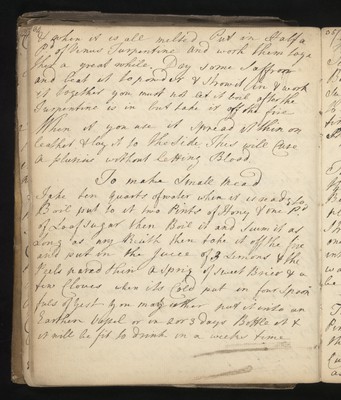 when it is all melted. Put in Half a
P.d of Venus Turpentine and work them toge
ther a great while. Dry some Saffron
and beat it to ponder & Strow it in & work
it together you must not let it boil after the
Turpentine is in but take it off the fire
When you use it Spread it thin on
leather & lay it to the Side. This will Cure
a plurisie without letting Blood
To make Small Mead
Take ten quarts of water when it is ready to
Boil put to it two Pints of Honey & one P.d
of Loaf Sugar then Boil it and Scum it as
Long as any Riseth then take it off the fire
and put in the Juice of 2 Lemons & the
Peels pared thin a Sprig of Sweet Brier & a
few Cloves when its Cold put in four Spoon
fuls of yest you may either put it into an
Earthen Vessel or in 2 or 3 days Bottle it &
it will be fit to drink in a weeks time